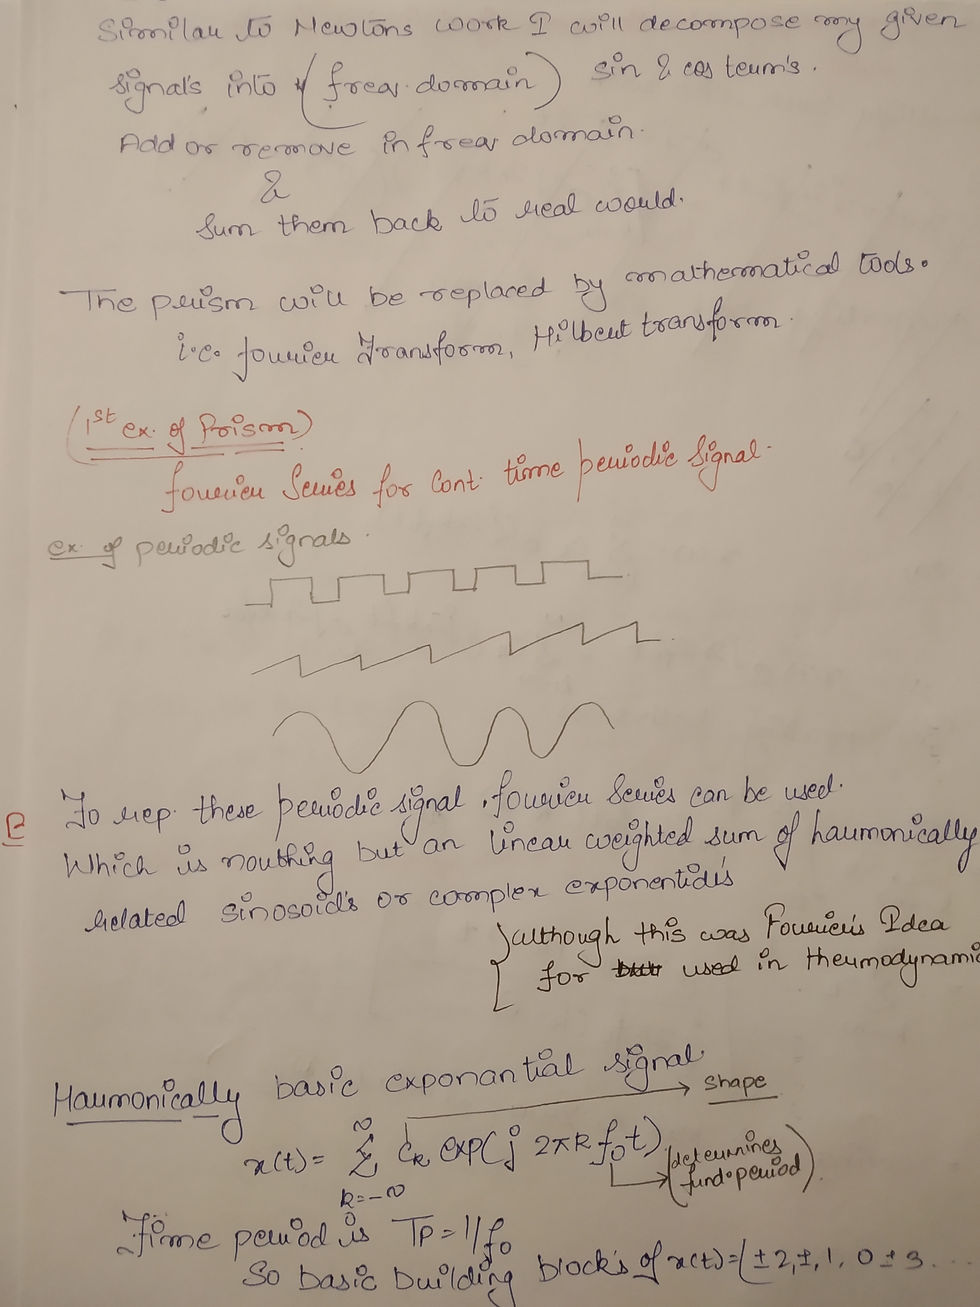 Similar to Newtons work I will decompose my given
signal's into (frequ. domain) sin & cos team's.
Add or remove in frequ domain.
&
Sum them back to real would.
The prism will be replaced by mathematical tools.
i.e. fourier Transform, Hilbert transform.
(1st ex. of Prism)
fourier Series for Cont. time periodic Signal.
ex. of periodic signals.
To rep. these periodic signal, fourier Series can be used.
Which is nouthing but an linear weighted sum of harmonically
related sinosoid's or complex exponentidis
although this was Fourier's Idea
for used in thermodynamic
Harmonically basic exponantial signal
→ shape
x(t) = ∞ Σ k=-∞ Ck exp(j 2πk f₀t) (determines
fund. period)
Time period is Tp = 1/f₀
So basic building block's of x(t) = (±2, ±, 1, 0 ± 3 ....